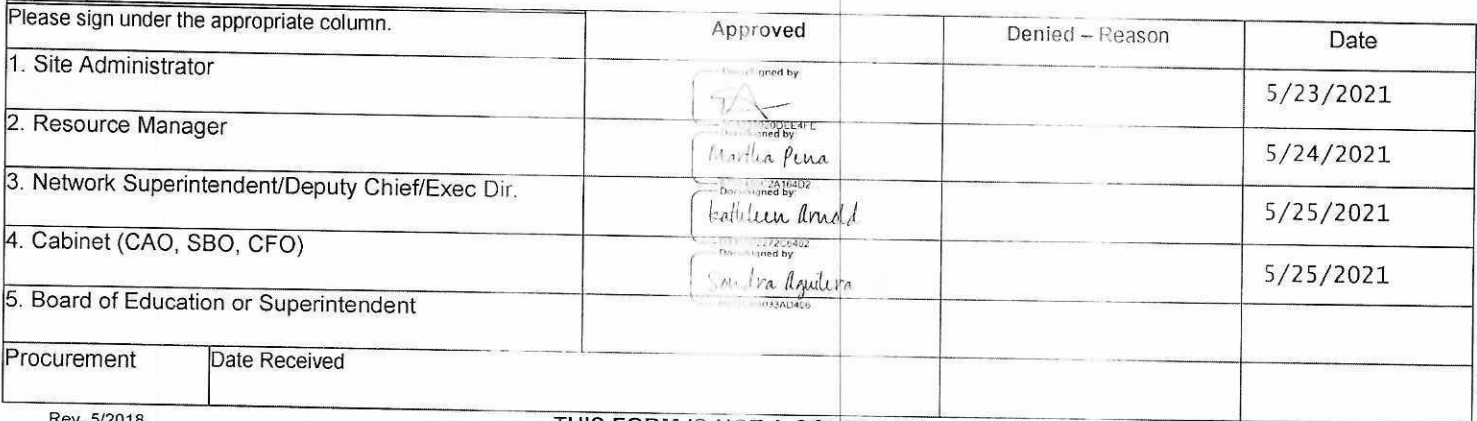 Please sign under the appropriate column. Approved Denied – Reason Date
1. Site Administrator 5/23/2021
2. Resource Manager Martha Pena 5/24/2021
3. Network Superintendent/Deputy Chief/Exec Dir. Kathleen Arnold 5/25/2021
4. Cabinet (CAO, SBO, CFO) Sandra Aguilera 5/25/2021
5. Board of Education or Superintendent
Procurement Date Received
Rev. 5/2018